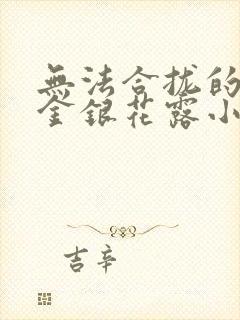 無法合拢的
金銀花露小
吉辛